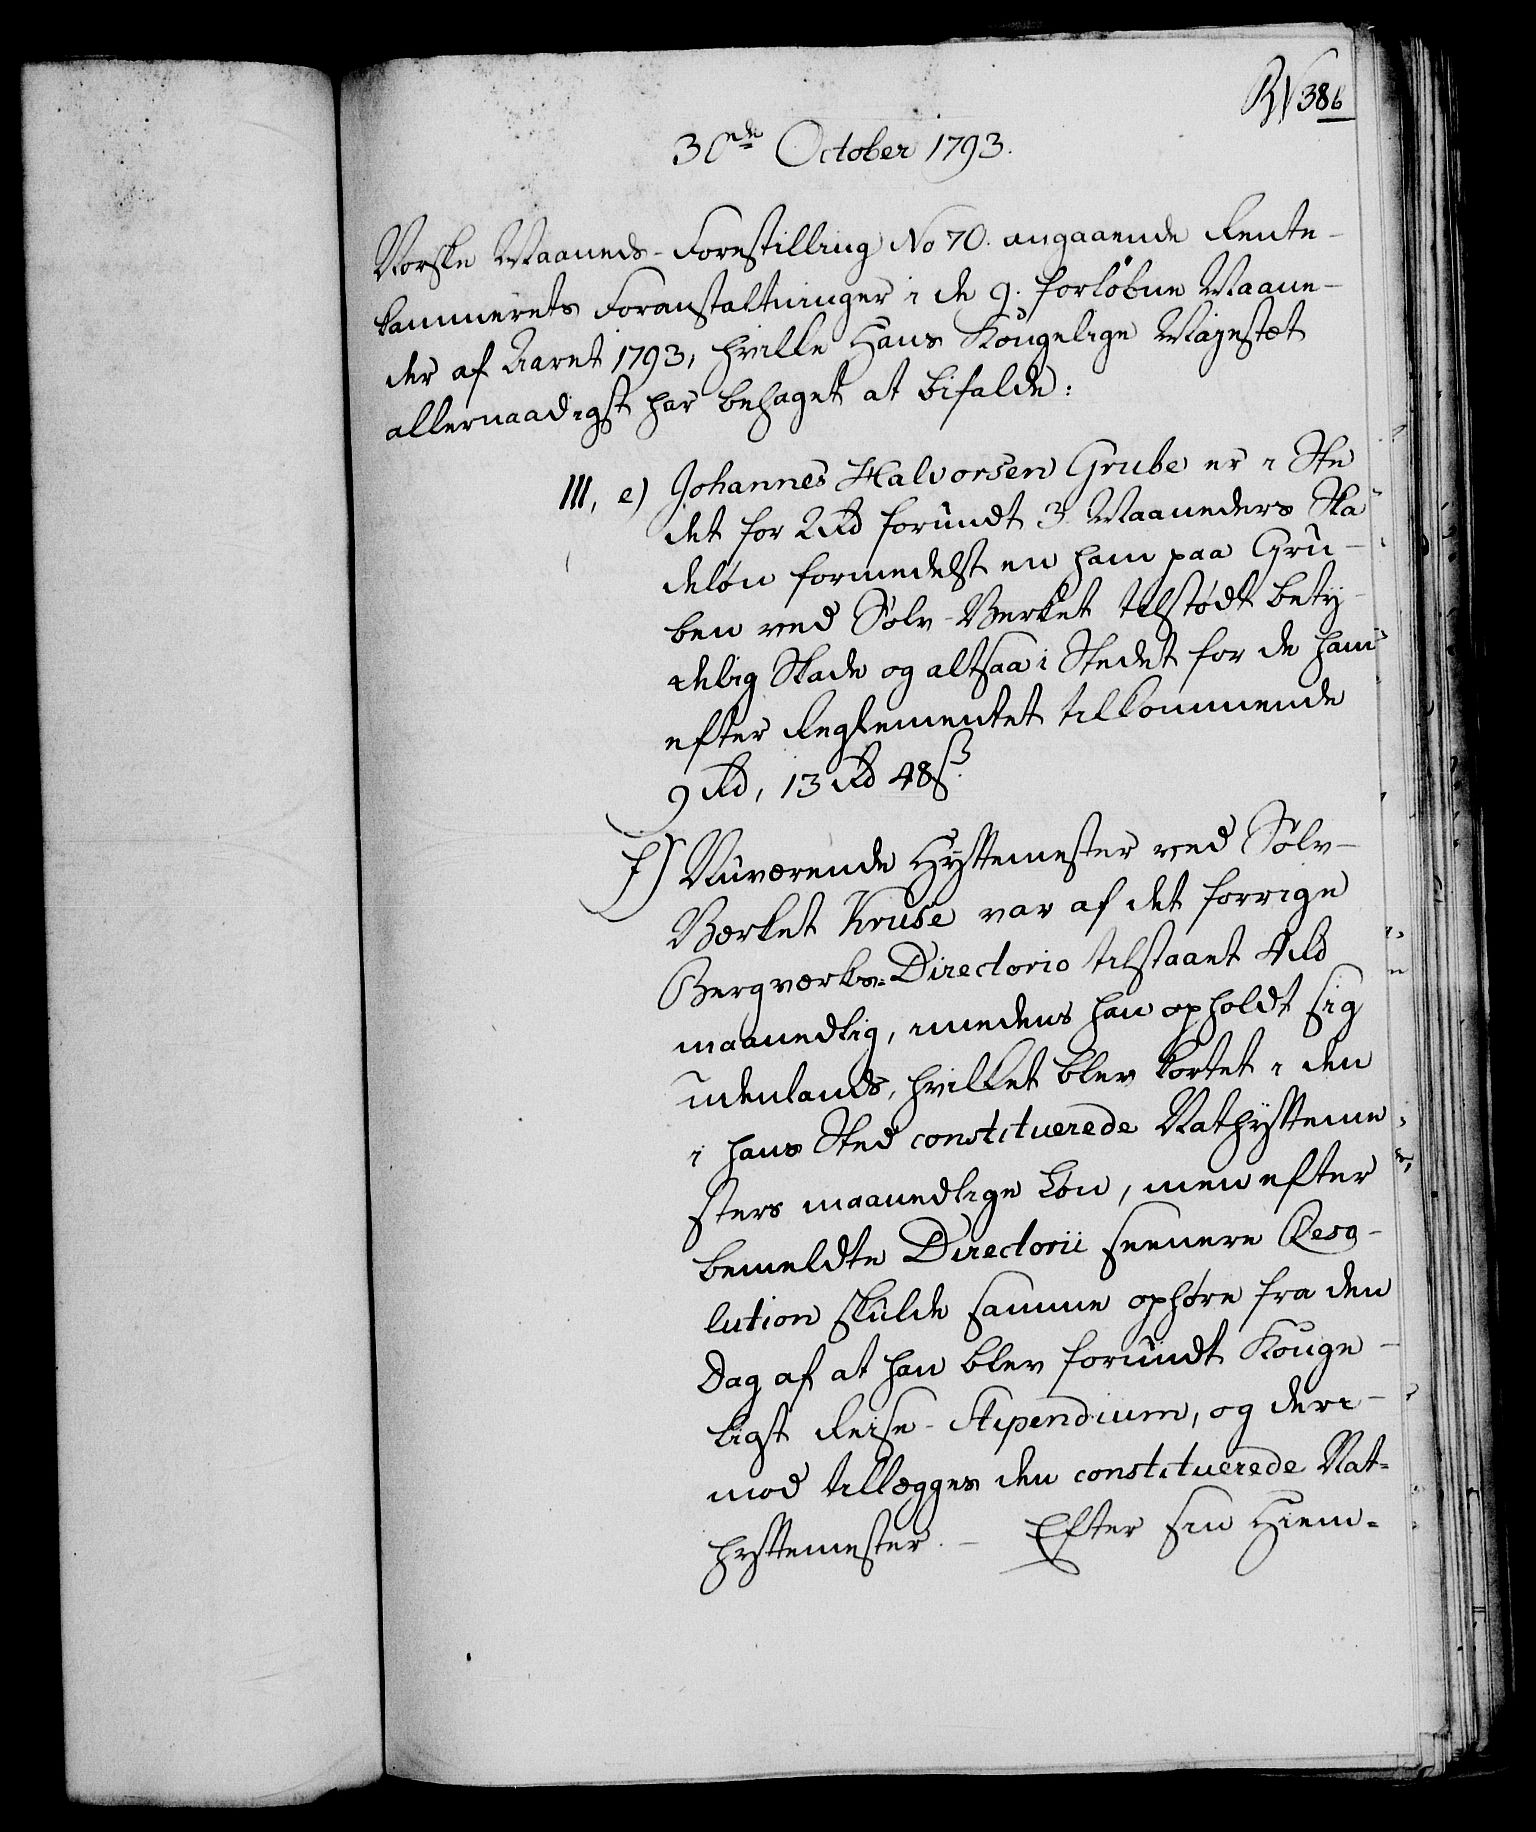 RV 386
30te October 1793.
Norske Maaneds-Forestilling No 70. angaaende Rente-
kammerets Foranstaltninger i de 9. forløbne Maane-
der af Aaret 1793, hvilke Hans Kongelige Majestet
allernaadigst har behaget at bifalde:
III, e) Johannes Halvorsen Grube er i Ste
det for 2 Rd forundt 3 Maaneders Ska
deløn formedelst en ham paa Gru-
ben ved Sølv-Verket tilstødt bety-
delig Skade og altsaa i Stedet for de ham
efter Reglementet tilkommende
9 Rd, 13 Rd 48 ß.
f) Nuværende Hyttemester ved Sølv-
Verket Kruse var af det forrige
Bergværks-Directorio tilstaaet 4 Rd
maanedlig, imedens han opholdt sig
udenlands, hvilket blev kortet i den
i hans Sted constituerede Nathytteme-
sters maanedlige Løn, men efter
bemeldte Directorii seenere Reso-
lution skulde samme ophøre fra den
Dag af at han blev forundt Konge-
ligt Reise-Stipendium, og deri-
mod tillægges den constituerede Nat-
hyttemester. - Efter sin Hiem-